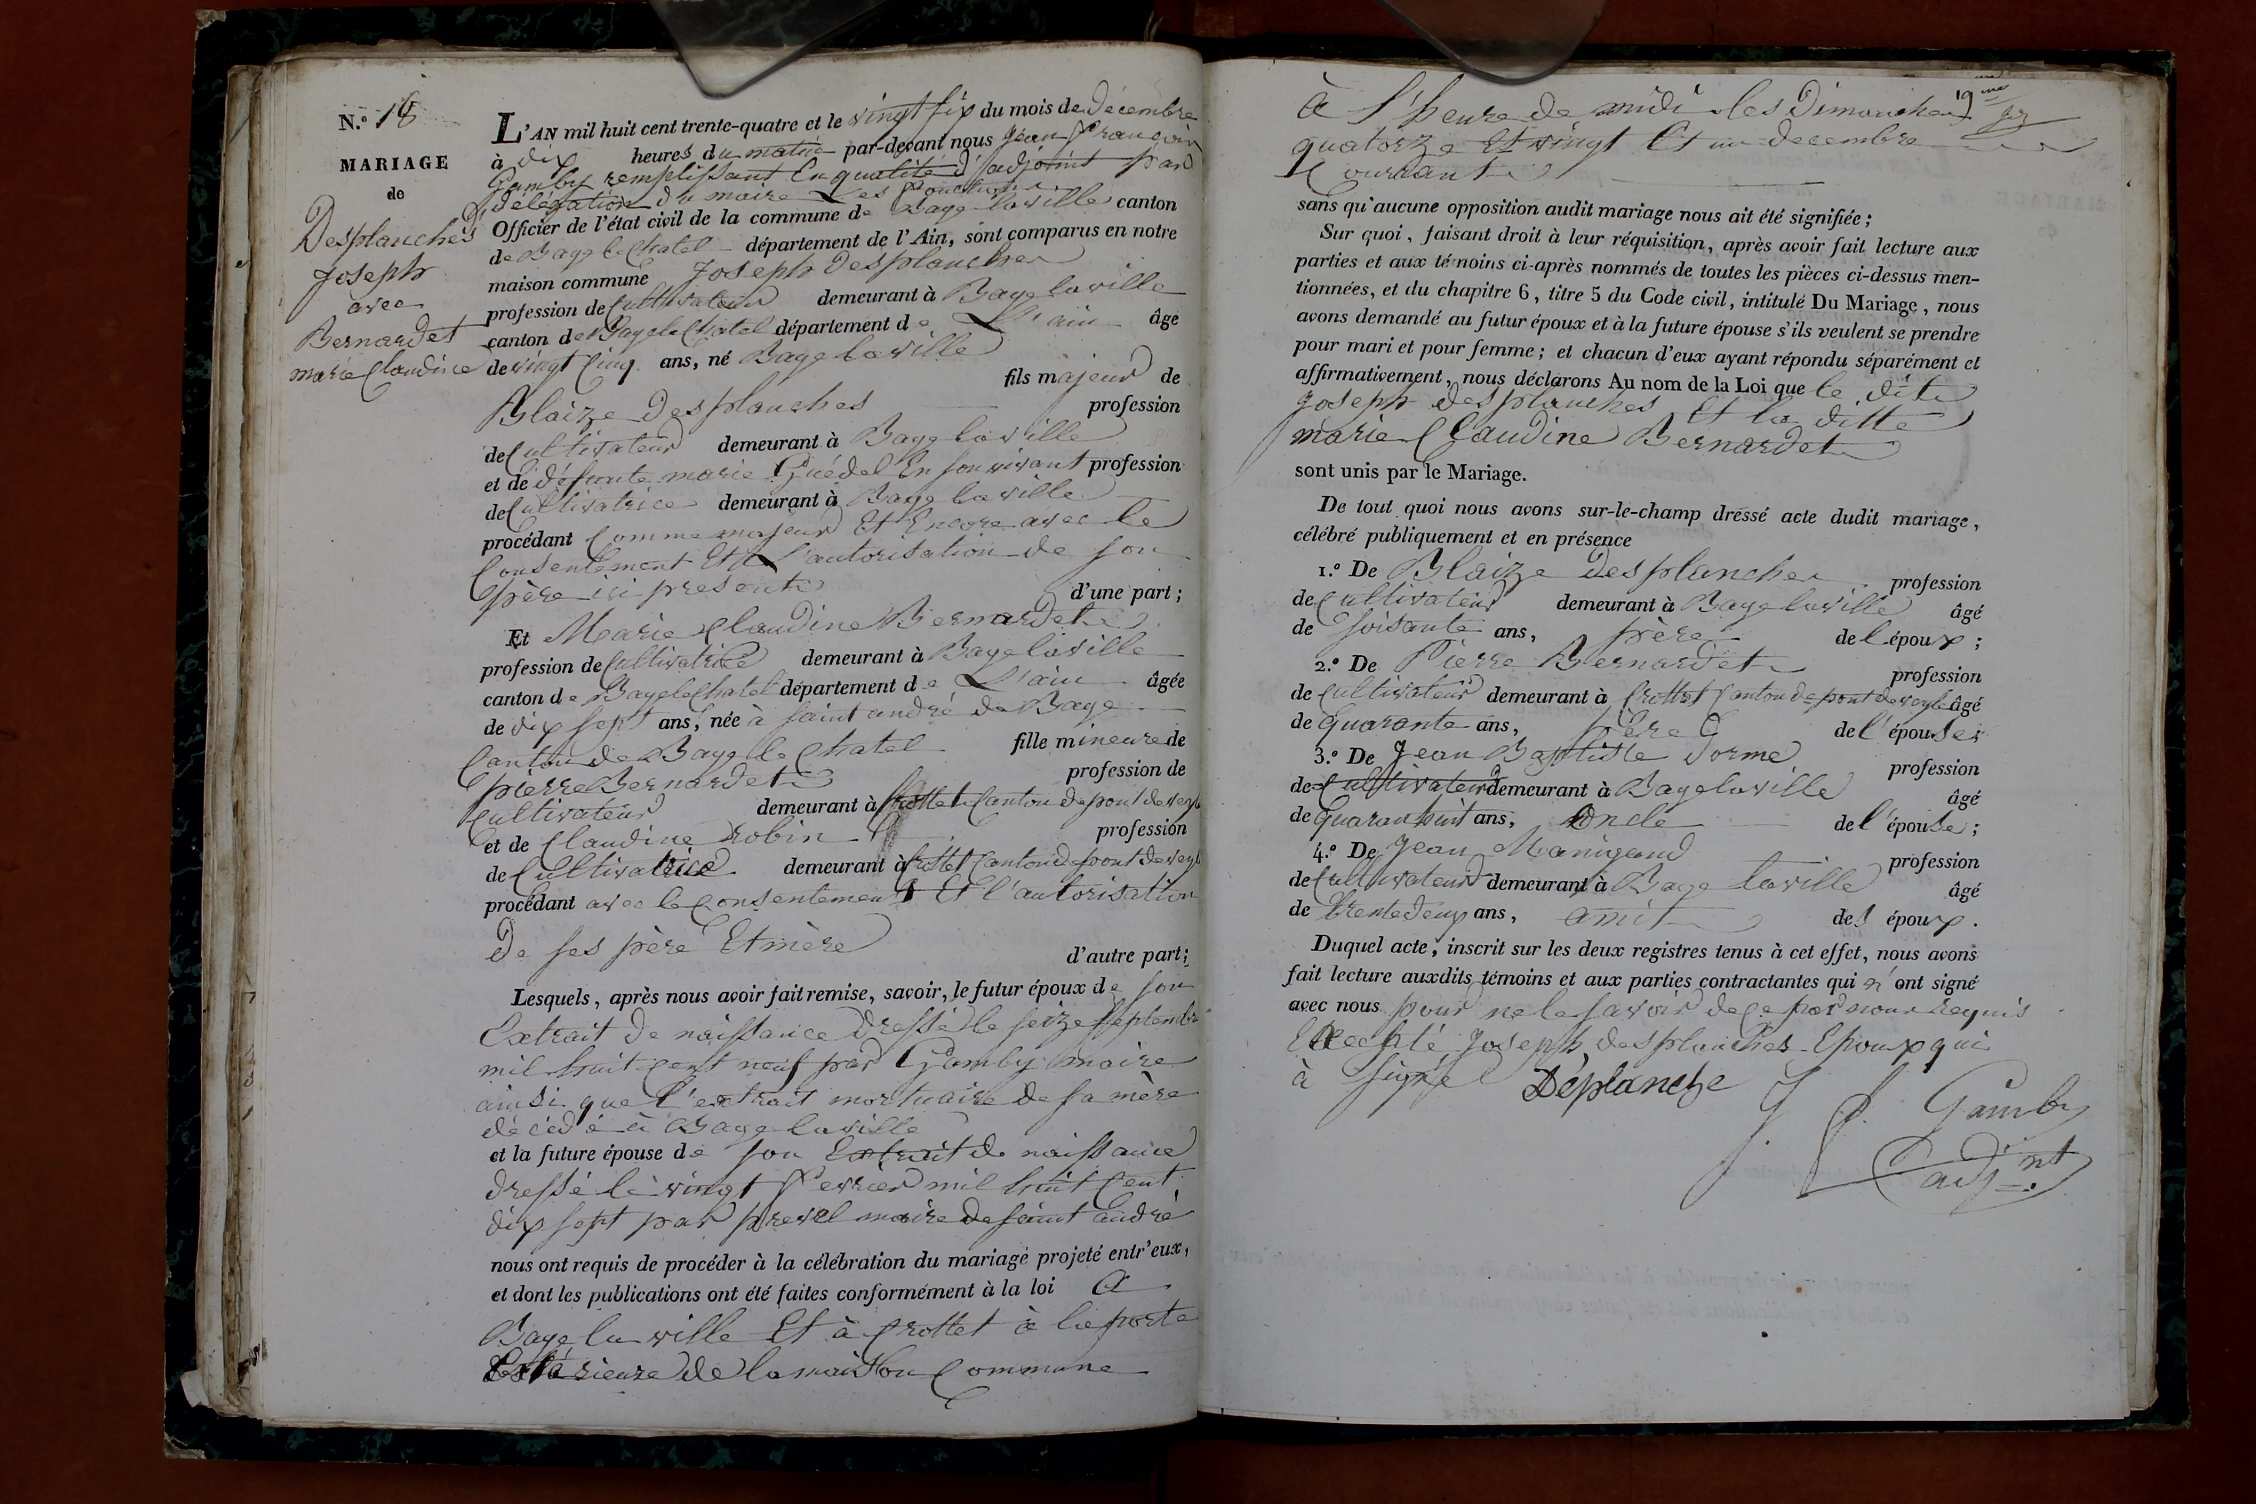 N.º 18
MARIAGE
de
Desplanches
Joseph
avec
Bernardet
marie Claudine
L'AN mil huit cent trente-quatre et le vingt six du mois de décembre
à dix heures du matin par-devant nous Jean François
Gamby remplissant En qualité d'adjoint par
délégation du maire Les fonctions
Officier de l'état civil de la commune de Bage laville canton
de Bage le Chatel département de l'Ain, sont comparus en notre
maison commune Joseph Desplanches
profession de Cultivateur demeurant à Bage laville
canton de Bage le Chatel département de L'ain âgé
de vingt Cinq ans, né Bage laville
fils majeur de
Blaize Desplanches profession
de Cultivateur demeurant à Bage laville
et de défunte marie Guédel En son vivant profession
de Cultivatrice demeurant à Bage laville
procédant Comme majeur Et Encore avec le
Consentement Et L'autorisation de son
père ici present d'une part;
Et Marie Claudine Bernardet
profession de Cultivatrice demeurant à Bage laville
canton de Bage le Chatel département de L'ain âgée
de dix sept ans, née à saint andré de Bage
Canton de Bage le Chatel fille mineure de
pierre Bernardet profession de
Cultivateur demeurant à Crottet Canton de pont de veyle
et de Claudine robin profession
de Cultivatrice demeurant à Crottet Canton de pont de veyle
procédant avec le Consentement Et l'autorisation
De ses père Et mère d'autre part;
Lesquels, après nous avoir fait remise, savoir, le futur époux de son
Extrait de naissance dressé le seize septembre
mil huit cent neuf par Gamby maire
ainsi que l'extrait mortuaire de sa mère
décédé à Bage laville
et la future épouse de son Extrait de naissance
dressé le vingt fevrier mil huit Cent
dix sept par prevel maire de saint andré
nous ont requis de procéder à la célébration du mariage projeté entr'eux,
et dont les publications ont été faites conformément à la loi a
Bage la ville Et à Crottet à la porte
Extérieure de la maison Commune
à l'heure de midi les Dimanches
quatorze Et vingt Et un decembre
Courant
sans qu'aucune opposition audit mariage nous ait été signifiée;
Sur quoi, faisant droit à leur réquisition, après avoir fait lecture aux
parties et aux témoins ci-après nommés de toutes les pièces ci-dessus men-
tionnées, et du chapitre 6, titre 5 du Code civil, intitulé Du Mariage, nous
avons demandé au futur époux et à la future épouse s'ils veulent se prendre
pour mari et pour femme; et chacun d'eux ayant répondu séparément et
affirmativement, nous déclarons Au nom de la Loi que le dit
Joseph desplanches Et la ditte
marie Claudine Bernardet
sont unis par le Mariage.
De tout quoi nous avons sur-le-champ dressé acte dudit mariage,
célébré publiquement et en présence
1.º De Blaize desplanches profession
de Cultivateur demeurant à Bage laville âgé
de soisante ans, père de l'époux;
2.º De Pierre Bernardet profession
de cultivateur demeurant à Crottet Canton de pont de veyle âgé
de quarante ans, père de l'épouse;
3.º De Jean Baptiste dorme profession
de Cultivateur demeurant à Bage laville âgé
de quarant huit ans, oncle de l'épouse;
4.º De Jean Manigand profession
de Cultivateur demeurant à Bage laville âgé
de trente deux ans, amit des époux.
Duquel acte, inscrit sur les deux registres tenus à cet effet, nous avons
fait lecture auxdits témoins et aux parties contractantes qui n'ont signé
avec nous pour ne le savoir de ce par nous requis
Excepté Joseph desplanches Epoux qui
à signé Déplanche J. f. Gamby
adjnt